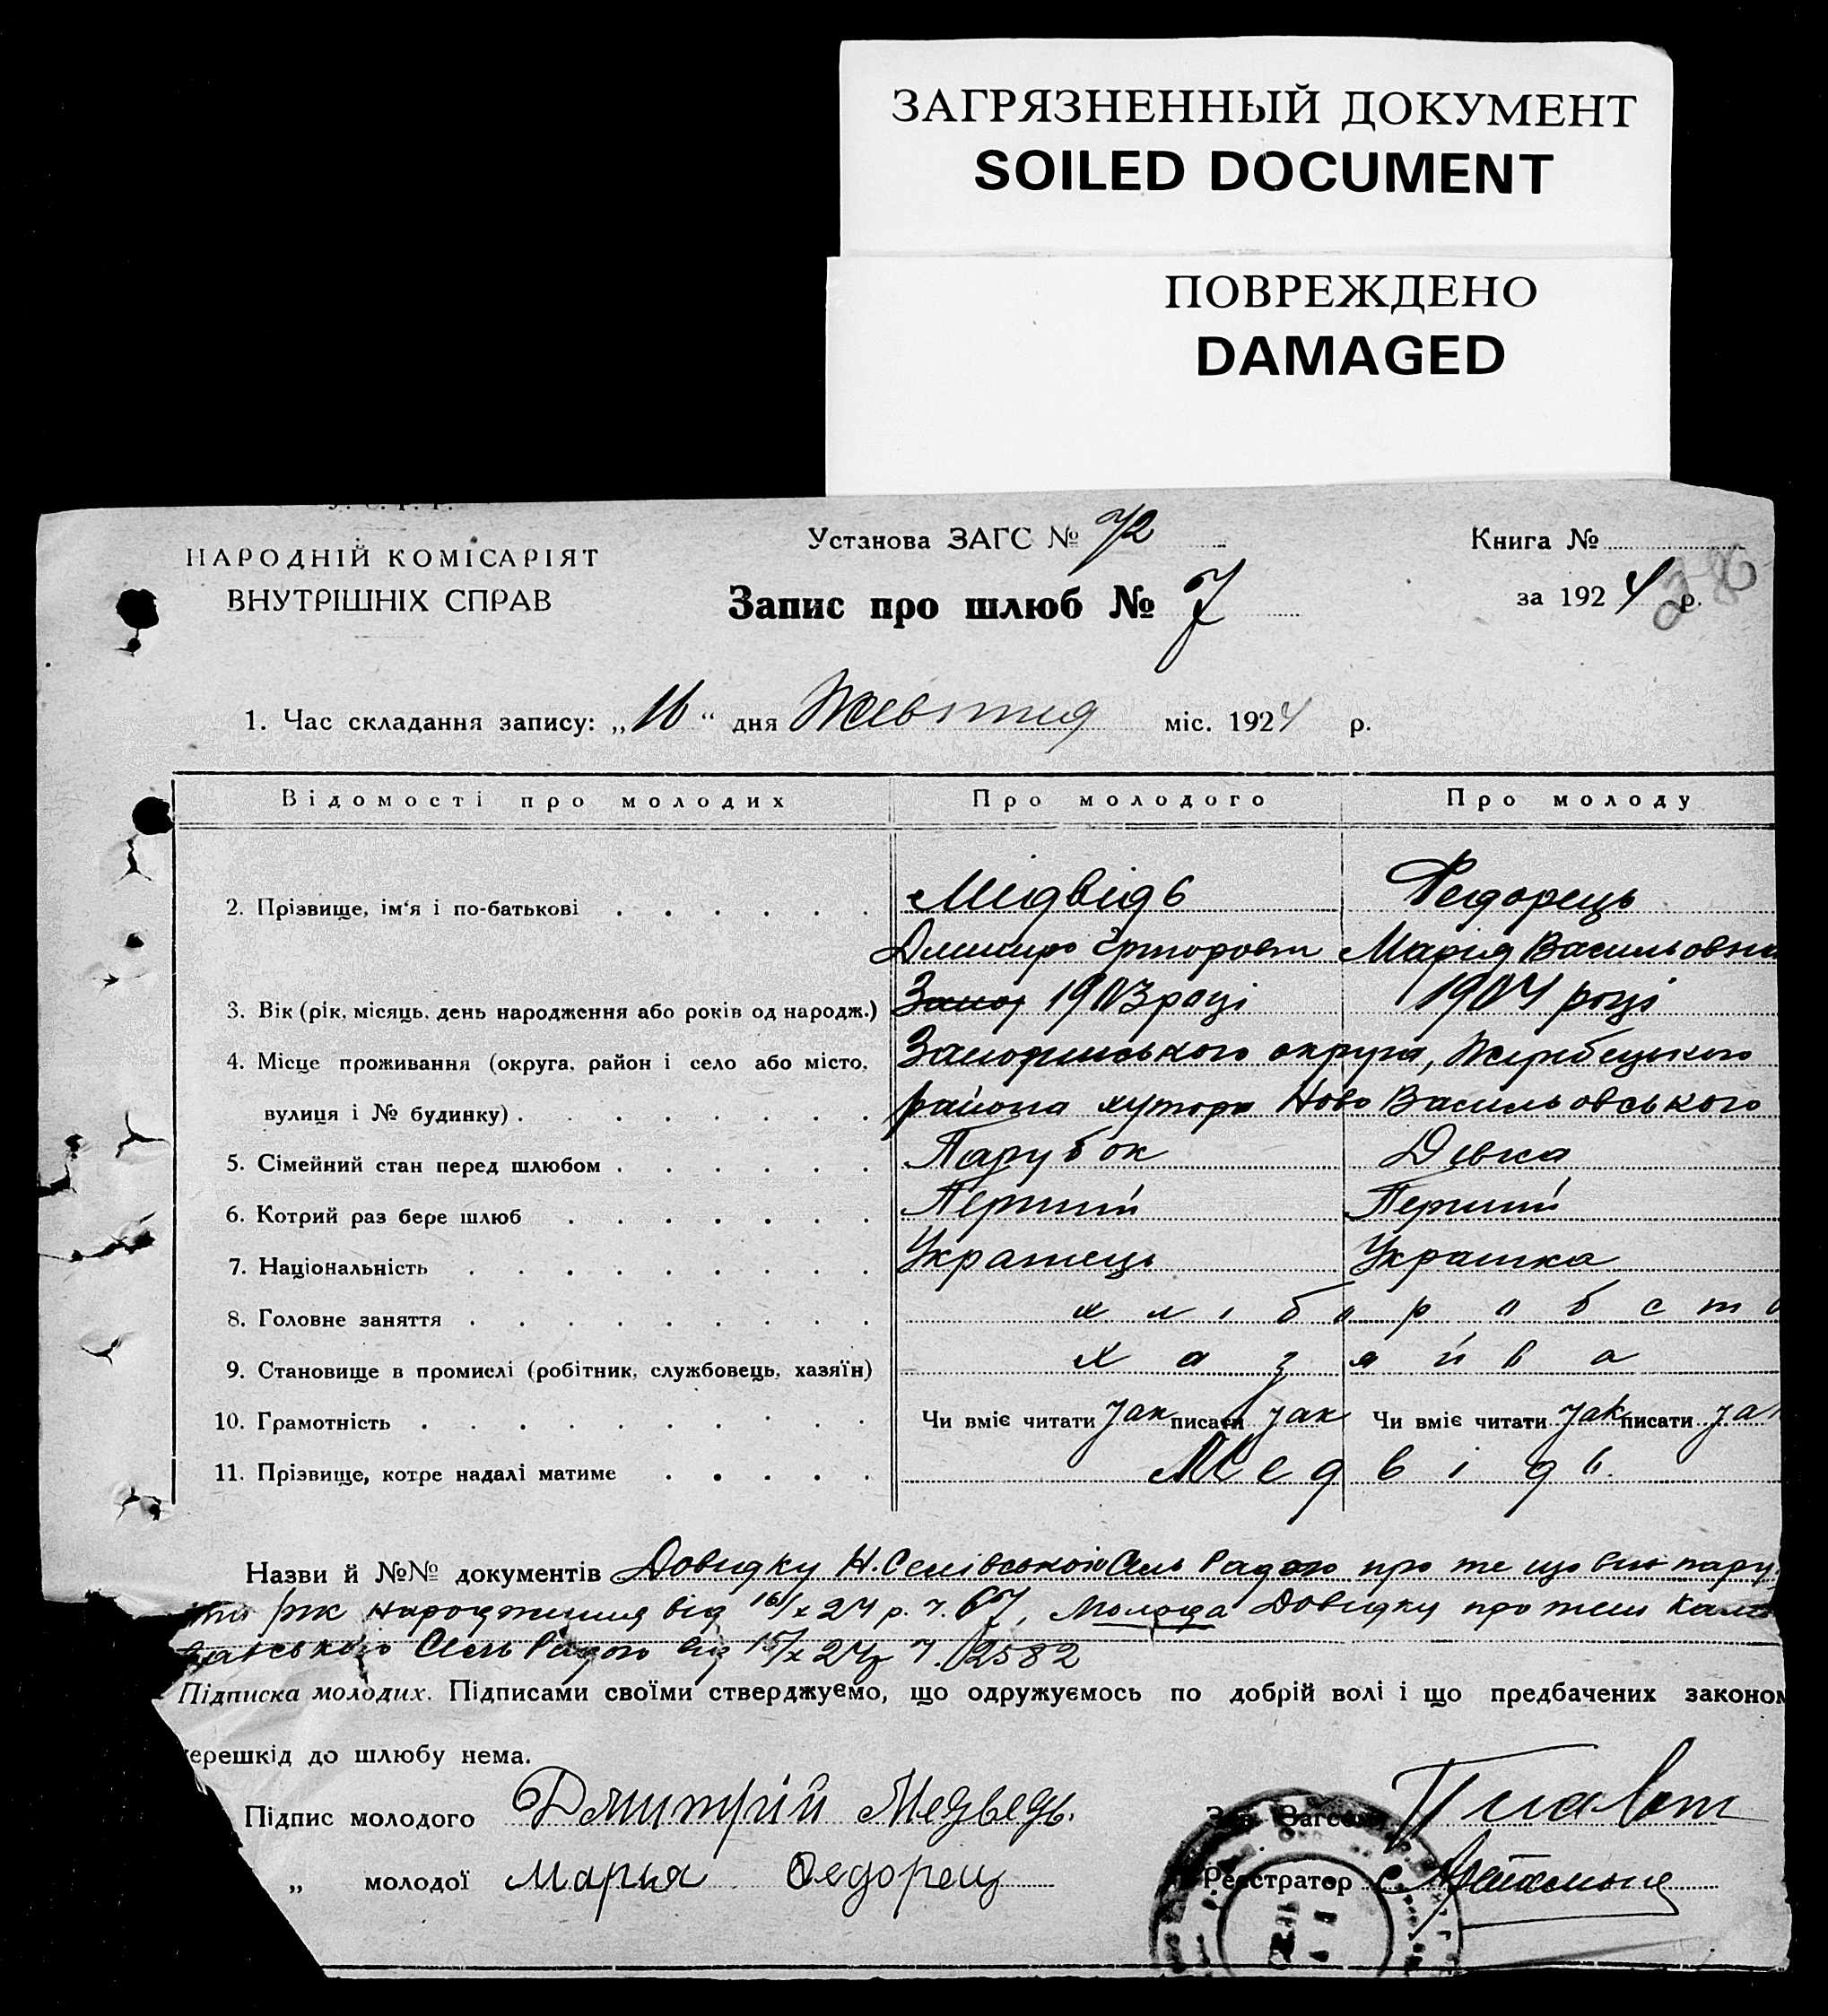 ЗАГРЯЗНЕННЫЙ ДОКУМЕНТ
SOILED DOCUMENT
ПОВРЕЖДЕНО
DAMAGED
НАРОДНІЙ КОМІСАРІЯТ
ВНУТРІШНІХ СПРАВ
Установа ЗАГС № 72
Запис про шлюб № 7
Книга №
за 1924 р.
1. Час складання запису: „16“ дня міс. 1924 р.
Відомості про молодих Про молодого Про молоду
2. Прізвище, ім‘я і по-батькові Мідвідь Федорець
Марія Васильовна
3. Вік (рік, місяць, день народження або років од народж.) 1903 році 1904 році
4. Місце проживання (округа, район і село або місто, округи, Жеребецького
вулиця і № будинку) района хутора Ново Васильовського
5. Сімейний стан перед шлюбом Парубок Девка
6. Котрий раз бере шлюб Перший Перший
7. Національність Украинець Украинка
8. Головне заняття хліборобств
9. Становище в промислі (робітник, службовець, хазяїн) хазяйва
10. Грамотність Чи вміє читати так писати так Чи вміє читати так писати так
11. Прізвище, котре надалі матиме Медвідь
Назви й №№ документів Довидку Сель Радою про те що він пару
рік народження від 16/X 24 р. ч. 67, Молода Довидку про теж
Сель Радою від 15/X 24 р ч. 2582
Підписка молодих. Підписами своїми стверджуємо, що одружуємось по добрій волі і що предбачених законом
ерешкід до шлюбу нема.
Підпис молодого Дмитрій Медведь.
Зав. Загсом
„ молодої Марья Федорец
Реєстратор